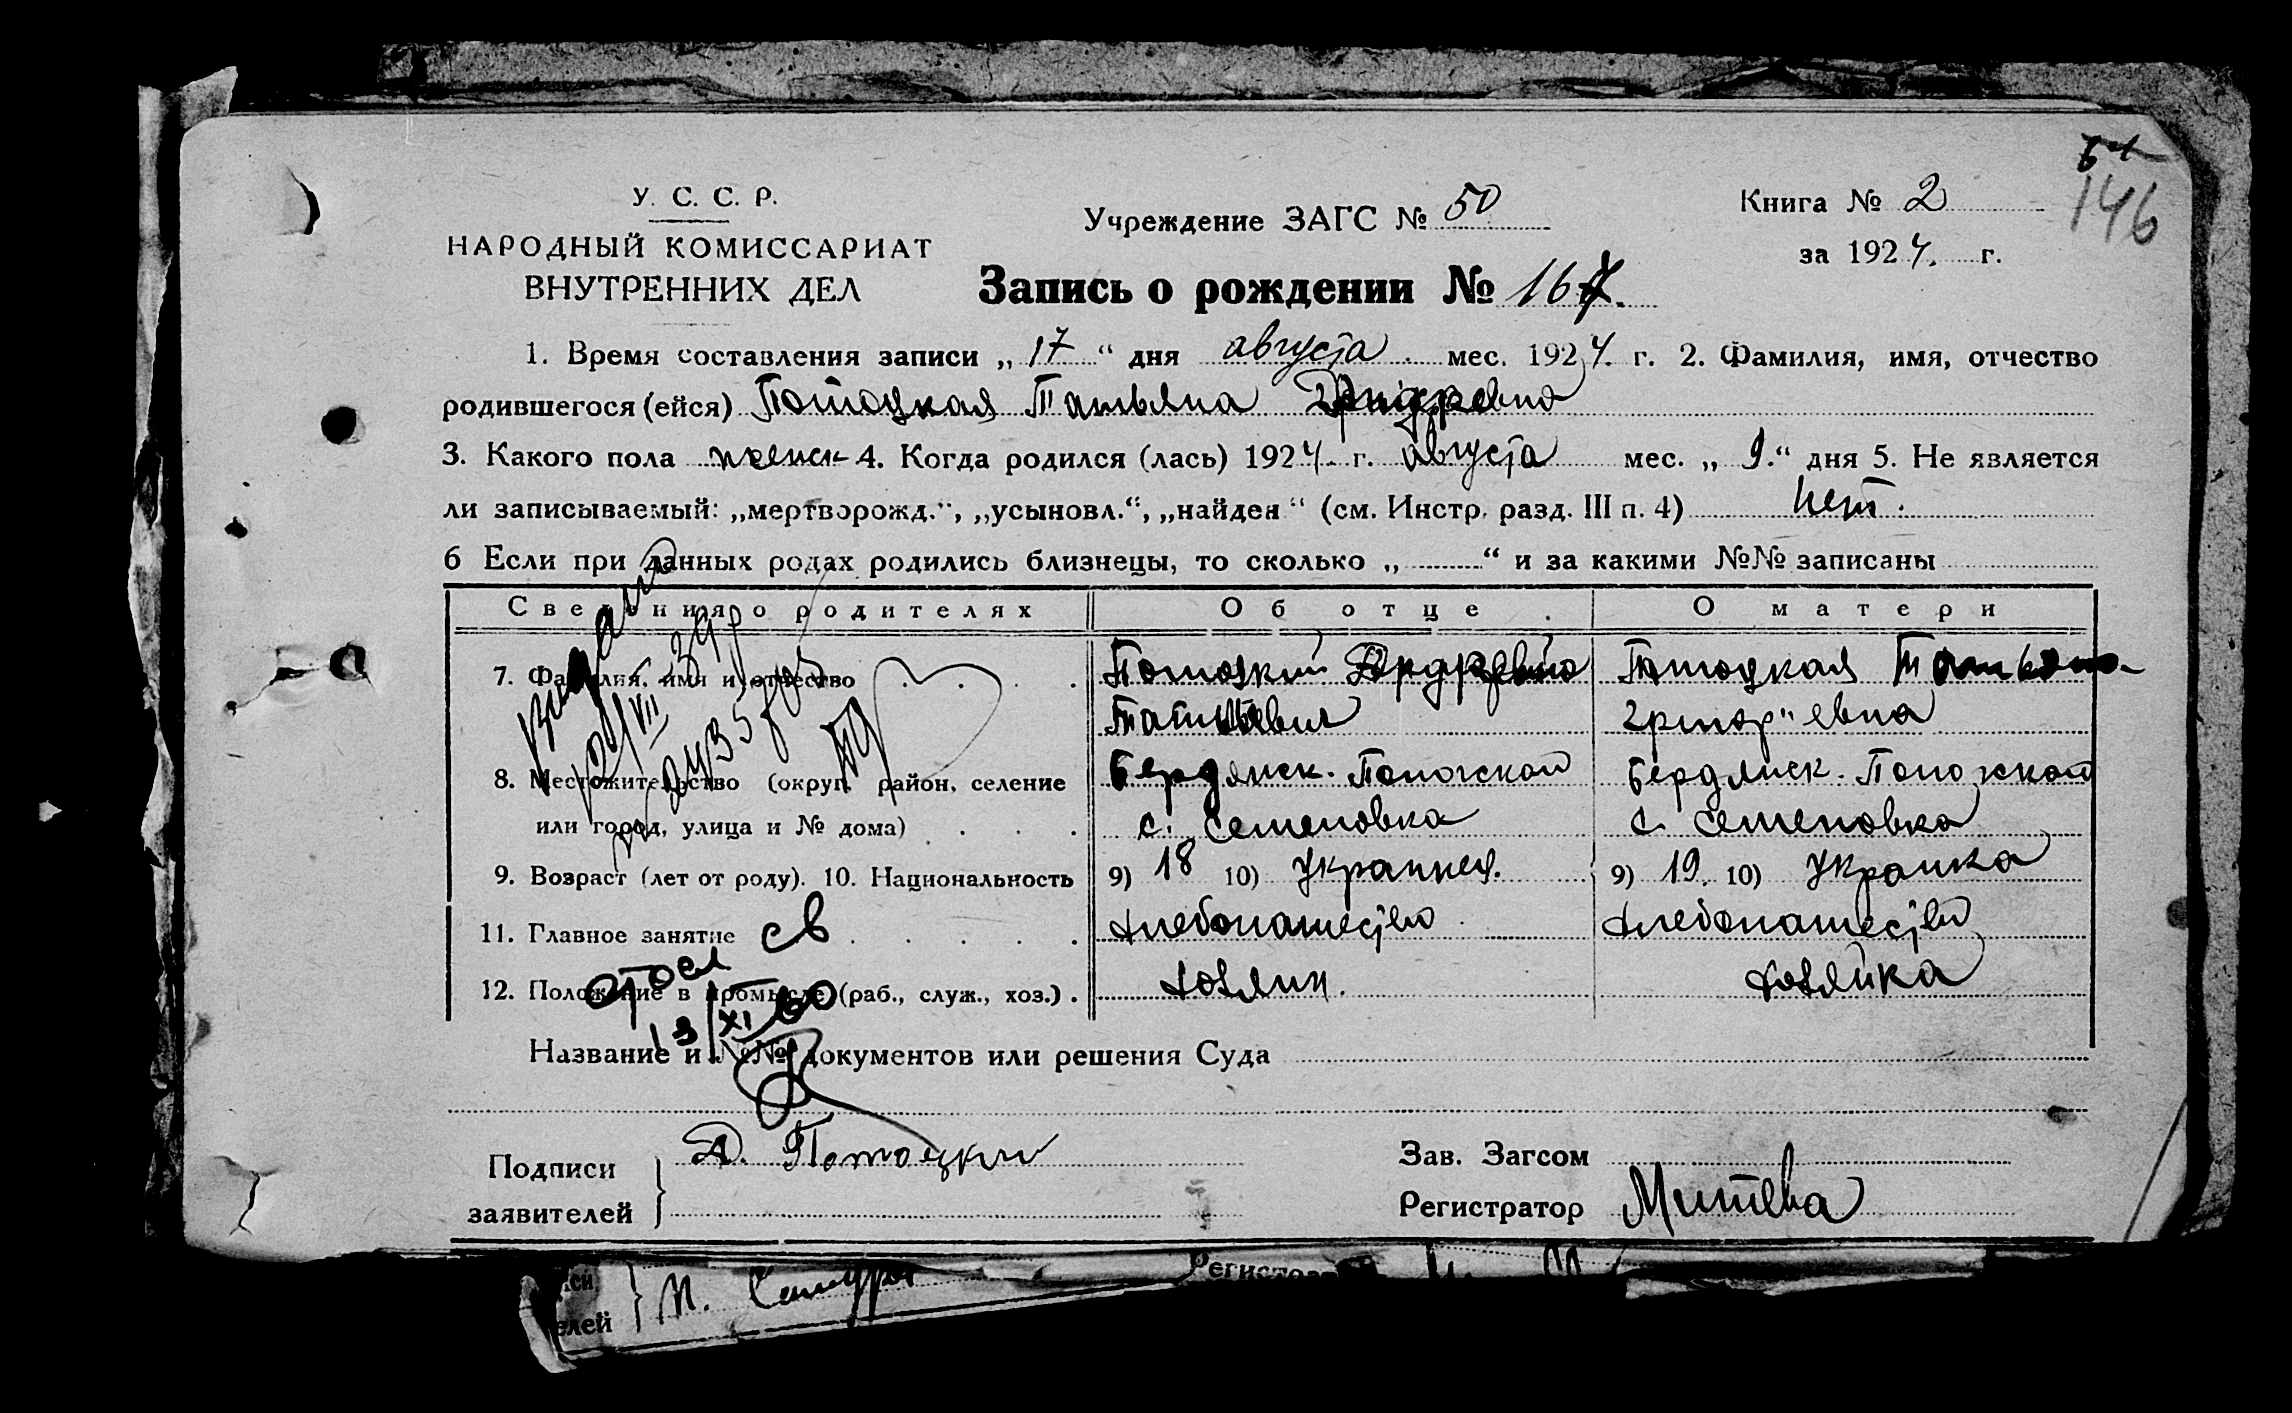 146
У. С. С. Р.
НАРОДНЫЙ КОМИССАРИАТ
ВНУТРЕННИХ ДЕЛ
Учреждение ЗАГС № 50
Книга № 2
за 1924. г.
Запись о рождении № 167.
1. Время составления записи „ 17 “ дня августа мес. 1924 г. 2. Фамилия, имя, отчество
родившегося (ейся) Потоцкая Татьяна
3. Какого пола женск 4. Когда родился (лась) 1924 г. августа мес. „ 9. “ дня 5. Не является
ли записываемый: „мертворожд.“, „усыновл.“, „найден“ (см. Инстр. разд. III п. 4) нет.
6 Если при данных родах родились близнецы, то сколько „ “ и за какими №№ записаны
Сведения о родителях Об отце О матери
7. Фамилия, имя и отчество Потоцкий Потоцкая Татьяна
Григорьевна
8. Местожительство (округ, район, селение Бердянск. Пологской Бердянск. Пологской
или город, улица и № дома) с. Семеновка с. Семеновка
9. Возраст (лет от роду). 10. Национальность 9) 18 10) Украинец. 9) 19. 10) Украинка
11. Главное занятие хлебопашество хлебопашество
12. Положение в промысле (раб., служ., хоз.) хозяин. хозяйка
св
13/XI
Название и №№ документов или решения Суда
Подписи
заявителей
Д. Потоцкий
Зав. Загсом
Регистратор Митева